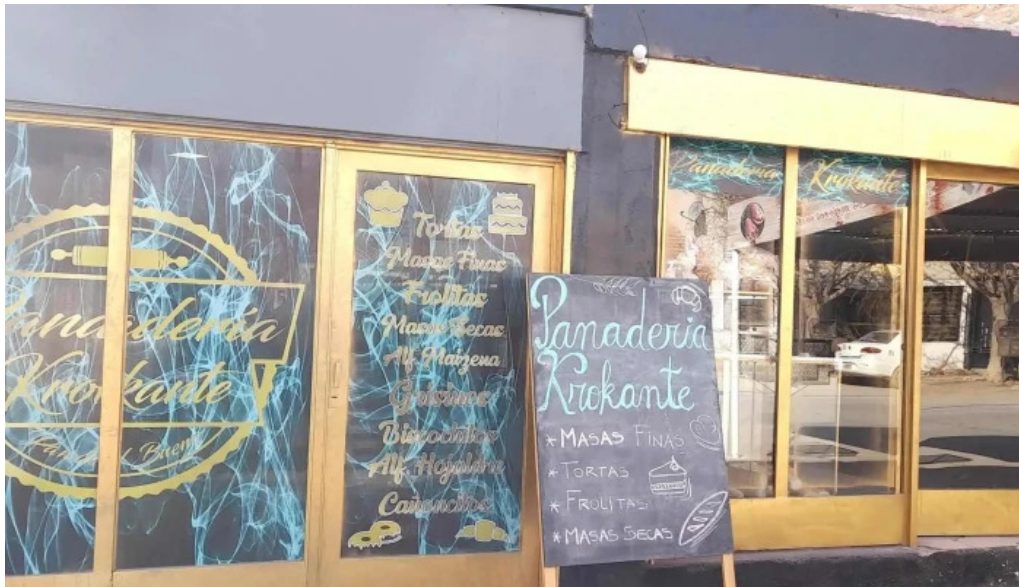 Panadería
Krokante
Tortas
Masas Finas
Frolitas
Masas Secas
Alf. Maizena
Grisines
Bizcochitos
Alf. Hojaldre
Cañoncitos
Panaderia
Krokante
* MASAS FINAS
* TORTAS
* FROLITAS
* MASAS SECAS
Panadería Krokante